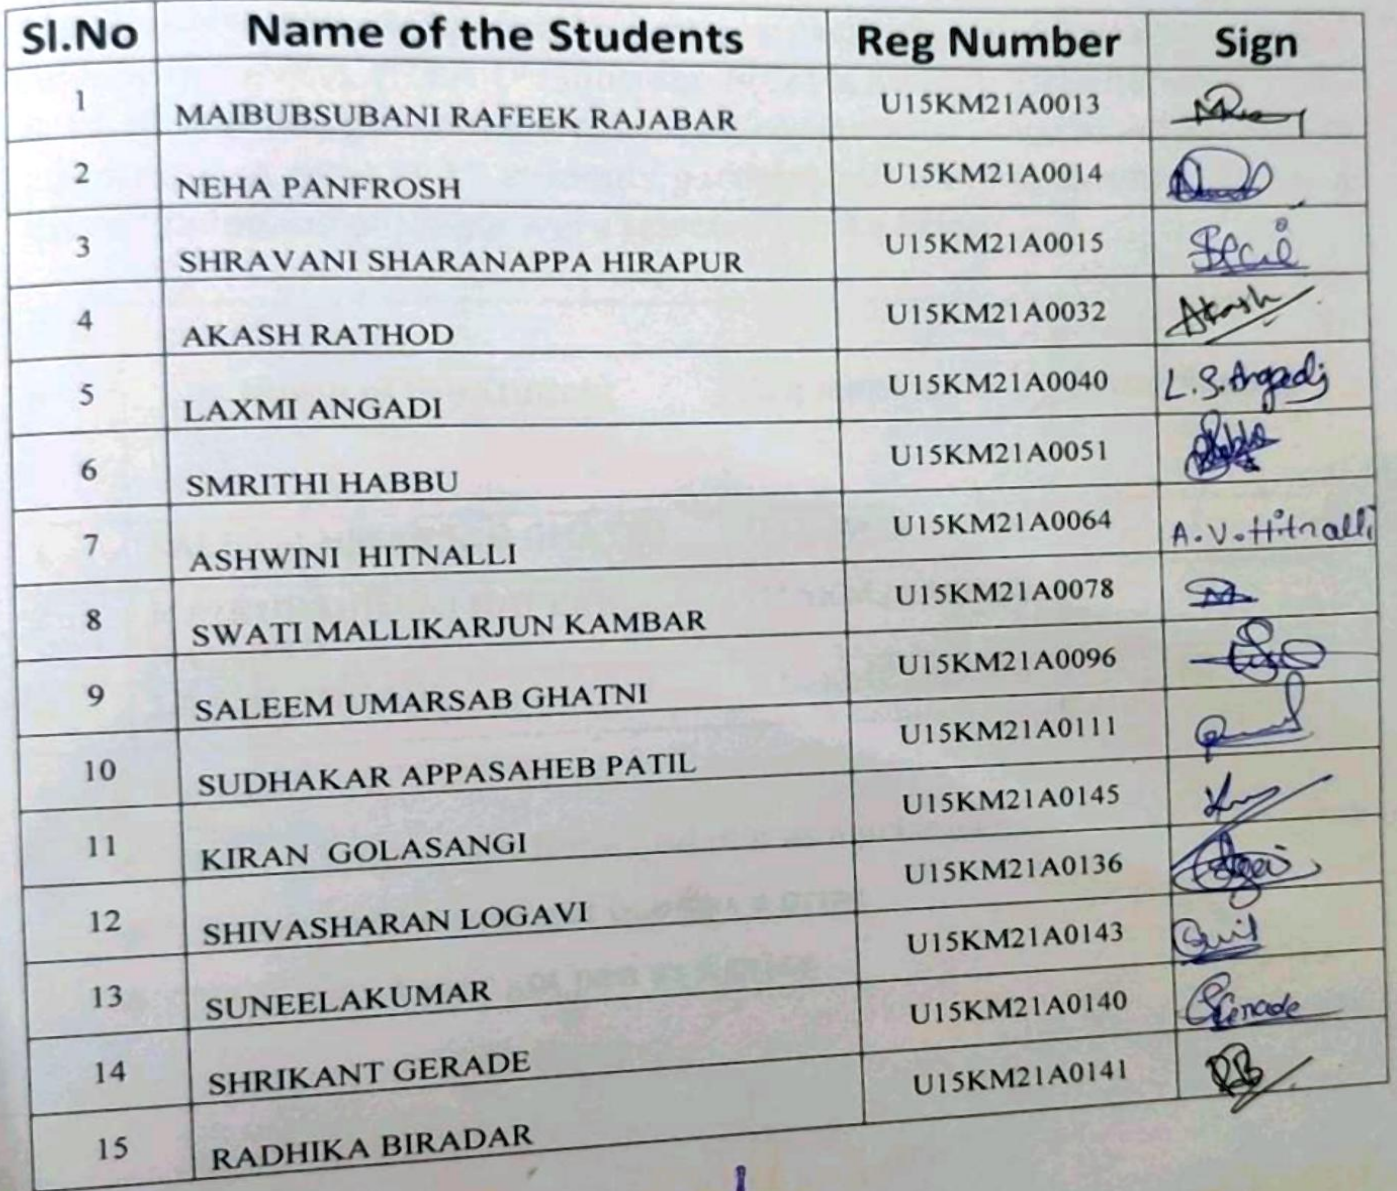 Sl.No Name of the Students Reg Number Sign
1 MAIBUBSUBANI RAFEEK RAJABAR U15KM21A0013
2 NEHA PANFROSH U15KM21A0014
3 SHRAVANI SHARANAPPA HIRAPUR U15KM21A0015
4 AKASH RATHOD U15KM21A0032 Akash
5 LAXMI ANGADI U15KM21A0040 L.S.Angadi
6 SMRITHI HABBU U15KM21A0051
7 ASHWINI HITNALLI U15KM21A0064 A.V.Hitnalli
8 SWATI MALLIKARJUN KAMBAR U15KM21A0078
9 SALEEM UMARSAB GHATNI U15KM21A0096
10 SUDHAKAR APPASAHEB PATIL U15KM21A0111
11 KIRAN GOLASANGI U15KM21A0145
12 SHIVASHARAN LOGAVI U15KM21A0136
13 SUNEELAKUMAR U15KM21A0143
14 SHRIKANT GERADE U15KM21A0140
15 RADHIKA BIRADAR U15KM21A0141 RB